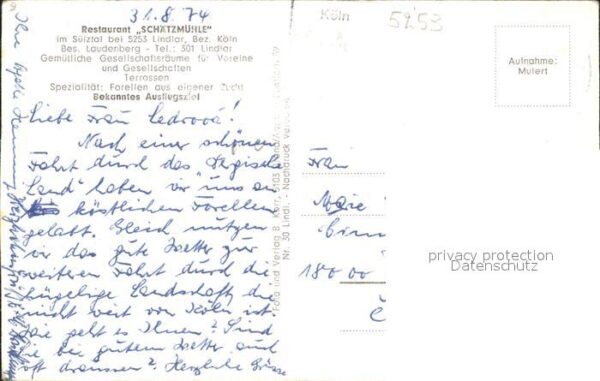 31.8.74
Restaurant „SCHÄTZMÜHLE"
im Sülztal bei 5253 Lindlar, Bez. Köln
Bes. Laudenberg - Tel.: 301 Lindlar
Gemütliche Gesellschaftsräume für Vereine
und Gesellschaften
Terrassen
Spezialität: Forellen aus eigener Zucht
Bekanntes Ausflugsziel
Liebe Frau
Nach einer schönen
Fahrt durch das "Bergische
Land" haben wir uns an
köstlichen Forellen
gelabt. Gleich nutzen
wir das gute Wetter zur
weiteren Fahrt durch die
hügelige Landschaft, die
nicht weit von Köln ist
Wie geht es Ihnen? Sind
Sie bei gutem Wetter auch
oft draussen? Herzliche Grüsse
Foto und Verlag B. Korr, 5103
Nr. 30 Lindl. - Nachdruck
Köln
5253
Aufnahme:
Mulert
Frau
Marie
180 00
Č
privacy protection
Datenschutz